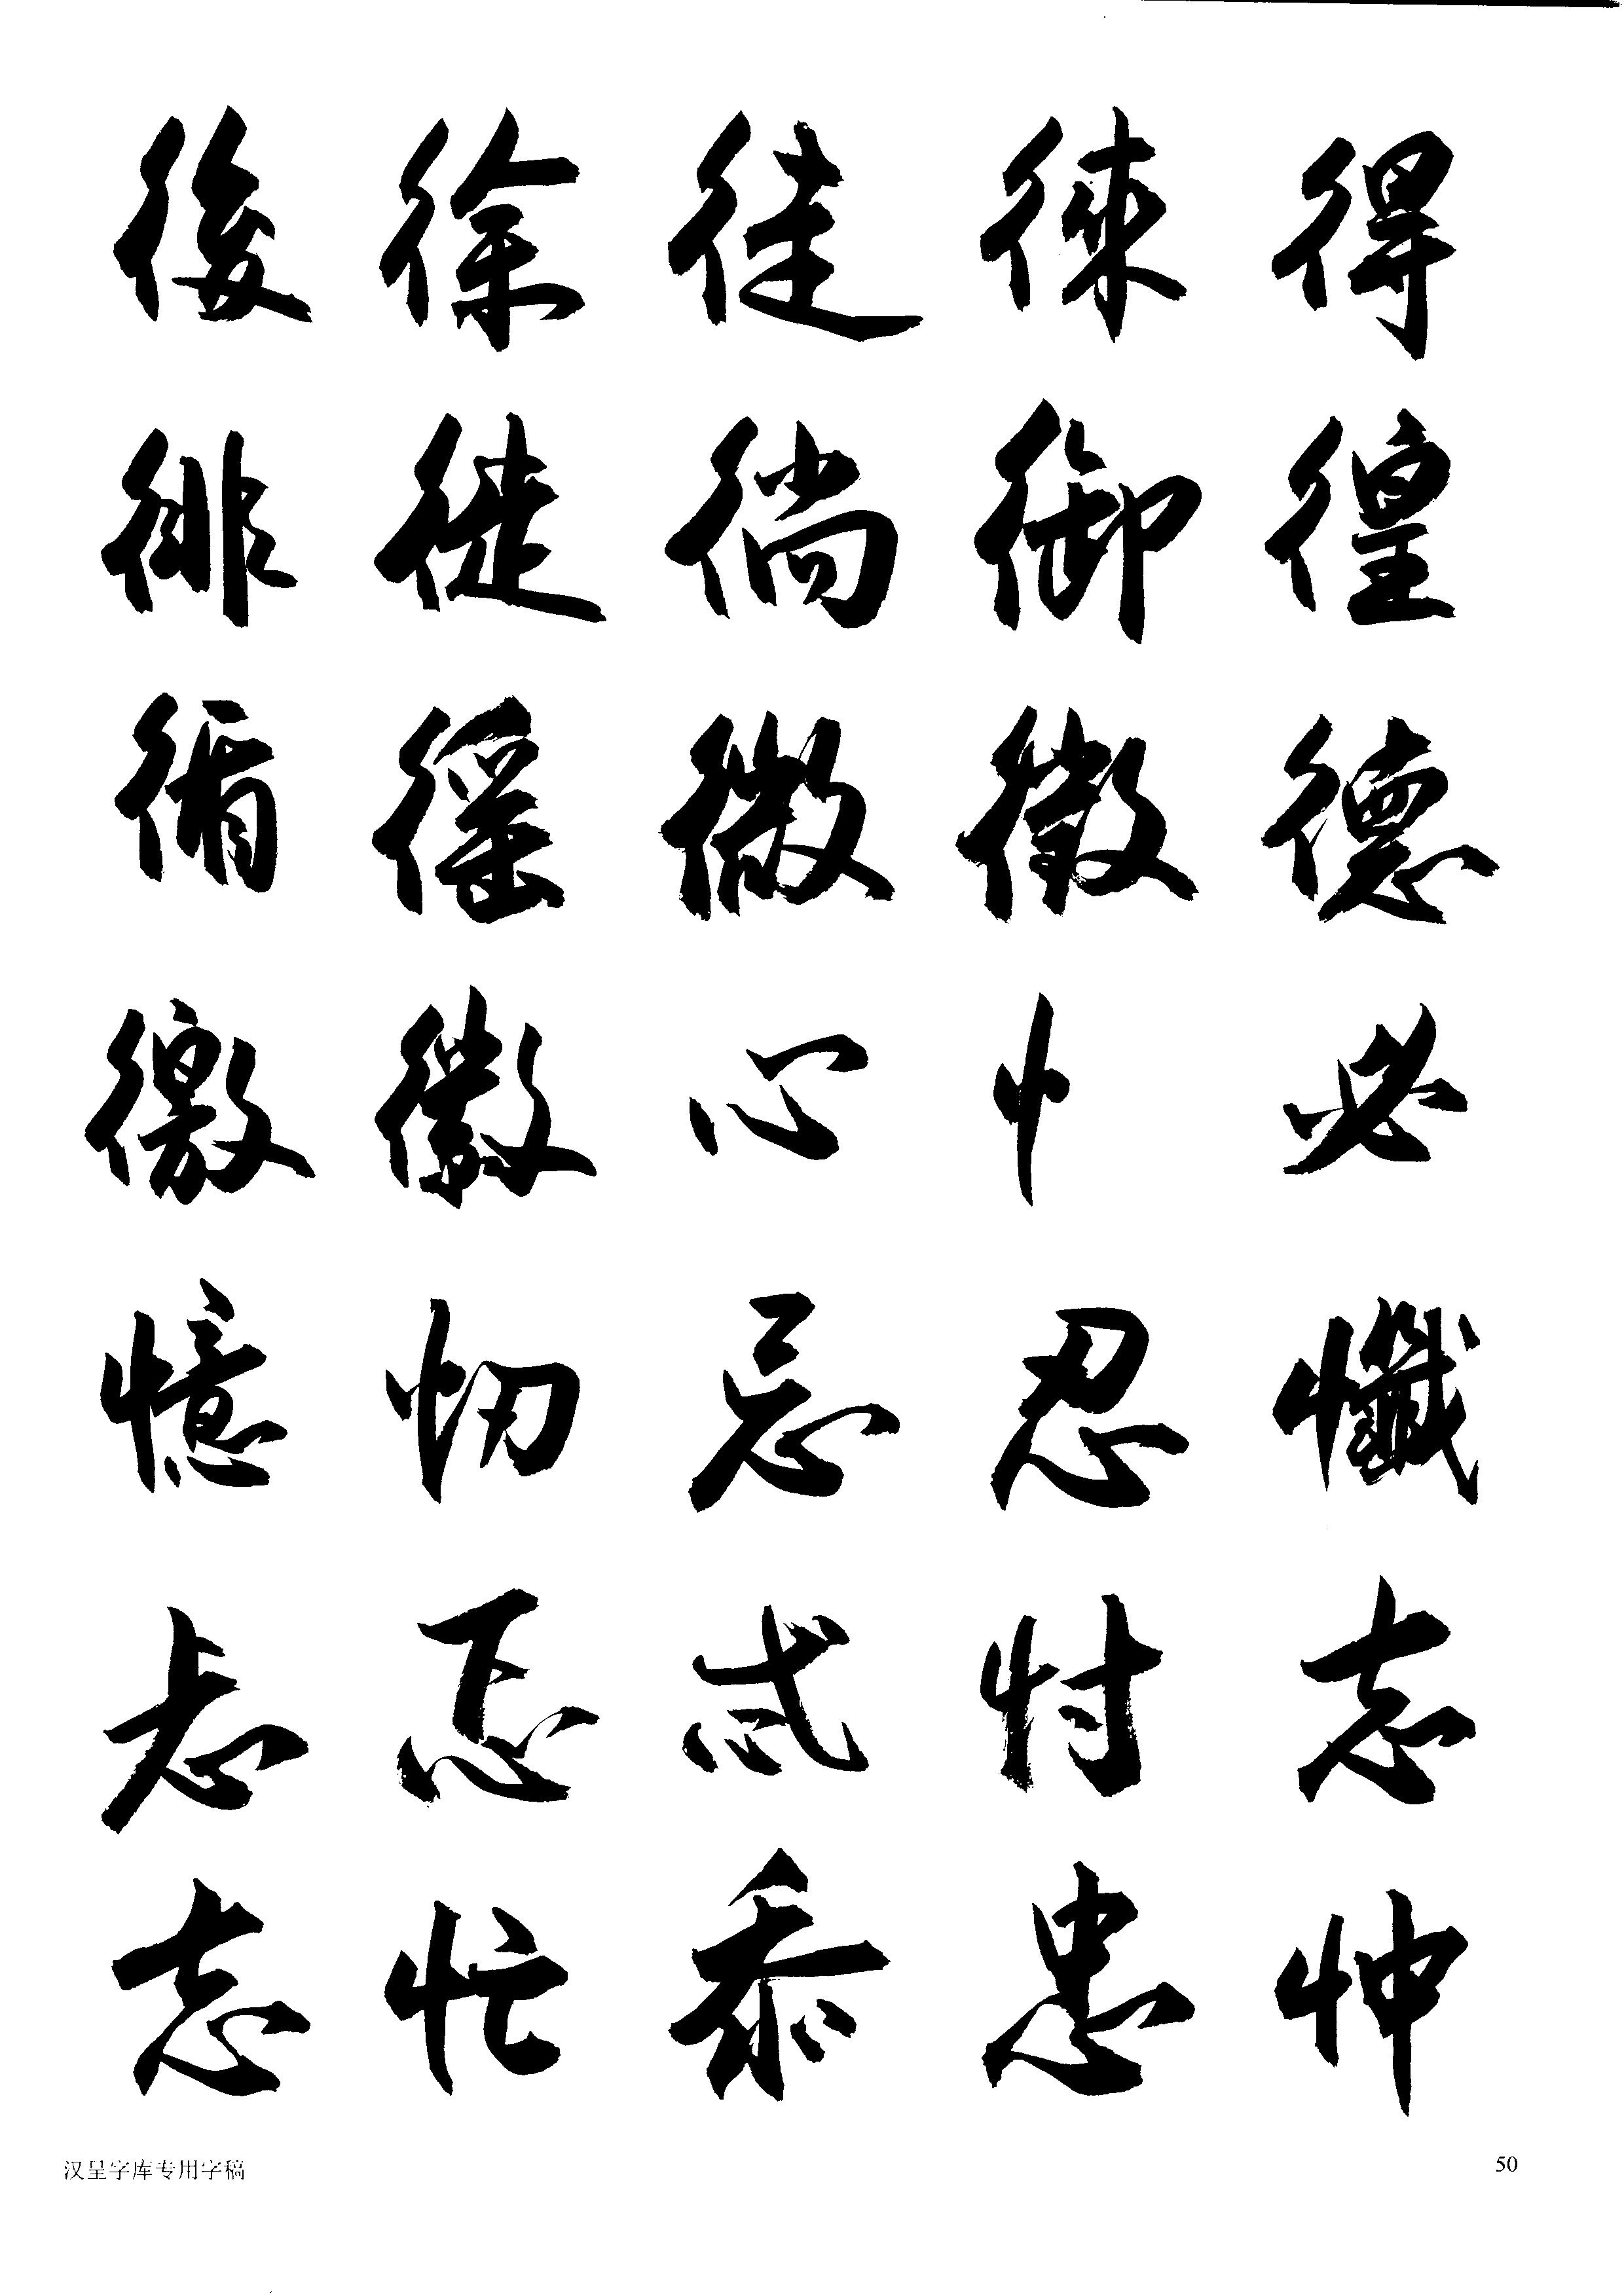 後 徐 徒 徠 得
徘 徙 徜 御 徨
循 徭 微 徵 德
徼 徽 心 忄 必
憶 忉 忌 忍 懺
忐 忑 忒 忖 志
志 忙 忝 患 忡
汉呈字库专用字稿
50